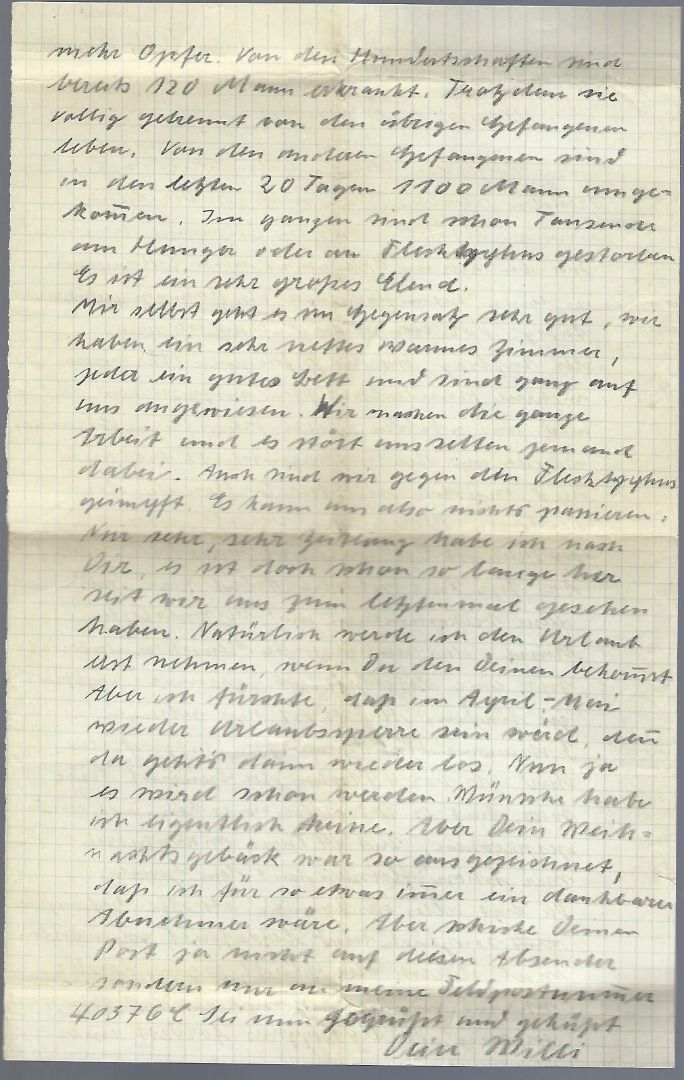 mehr Opfer. Von den Hundertschaften sind
bereits 120 Mann erkrankt. Trotzdem sie
völlig getrennt von den übrigen Gefangenen
leben. Von den anderen Gefangenen sind
in den letzten 20 Tagen 1100 Mann umge=
kom̅en. Im ganzen sind schon Tausende
am Hunger oder an Flecktyphus gestorben
Es ist ein sehr großes Elend.
Mir selbst geht es im Gegensatz sehr gut, wir
haben ein sehr nettes warmes Zimmer,
jeder ein gutes Bett und sind ganz auf
uns angewiesen. Wir machen die ganze
Arbeit und es stört uns selten jemand
dabei. Auch sind wir gegen den Flecktyphus
geimpft. Es kann uns also nichts passieren.
Nur sehr, sehr Zeitlang habe ich nach
Dir, es ist doch schon so lange her
seit wir uns zum letztenmal gesehen
haben. Natürlich werde ich den Urlaub
erst nehmen, wenn Du den Deinen bekom̅st
Aber ich fürchte, daß im April-Mai
wieder Urlaubssperre sein wird, den̅
da geht's dann wieder los. Nun ja
es wird schon werden. Wünsche habe
ich eigentlich keine. Aber Dein Weih=
nachtsgebäck war so ausgezeichnet,
daß ich für so etwas im̅er ein dankbarer
Abnehmer wäre. Aber schicke Deine
Post ja nicht auf diesen Absender
sondern nur an meine Feldpostnum̅er
40376 C Sei nun gegrüßt und geküßt
Dein Willi